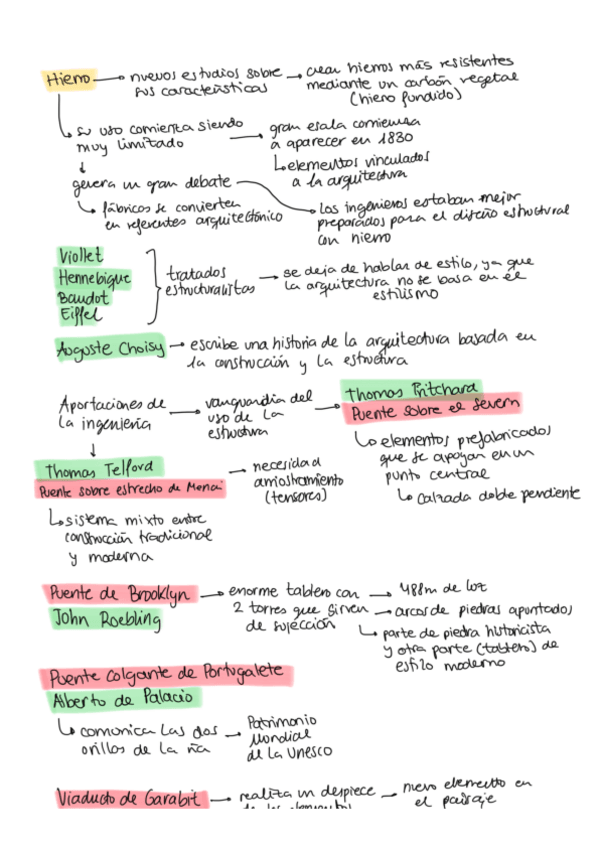 Hierro → nuevos estudios sobre sus características → crear hierros más resistentes mediante un carbón vegetal (hiero fundido)
↳ su uso comienza siendo muy limitado → gran escala comienza a aparecer en 1830
↳ elementos vinculados a la arquitectura
↓
genera un gran debate → los ingenieros estaban mejor preparados para el diseño estructural con hierro
↳ fábricos se convierten en referentes arquitectónico
Viollet
Hennebique
Baudot
Eiffel
tratados estructuralistas → se deja de hablar de estilo, ya que la arquitectura no se basa en el estilismo
Auguste Choisy → escribe una historia de la arquitectura basada en la construcción y la estructura
Aportaciones de la ingeniería → vanguardia del uso de la estructura → Thomas Pritchard
Puente sobre el Severn
↳ elementos prefabricados que se apoyan en un punto central
↳ calzada doble pendiente
↓
Thomas Telford
Puente sobre estrecho de Menai → necesidad arriostramiento (tensores)
↳ sistema mixto entre construcción tradicional y moderna
Puente de Brooklyn
John Roebling
→ enorme tablero con 2 torres que sirven de sujección → 488m de luz
→ arcos de piedras apuntados
↳ parte de piedra historicista y otra parte (tablero) de estilo moderno
Puente colgante de Portugalete
Alberto de Palacio
↳ comunica las dos orillos de la ría → Patrimonio Mondial de la Unesco
Viaducto de Garabit → realiza un despiece de los elementos → nuevo elemento en el paisaje